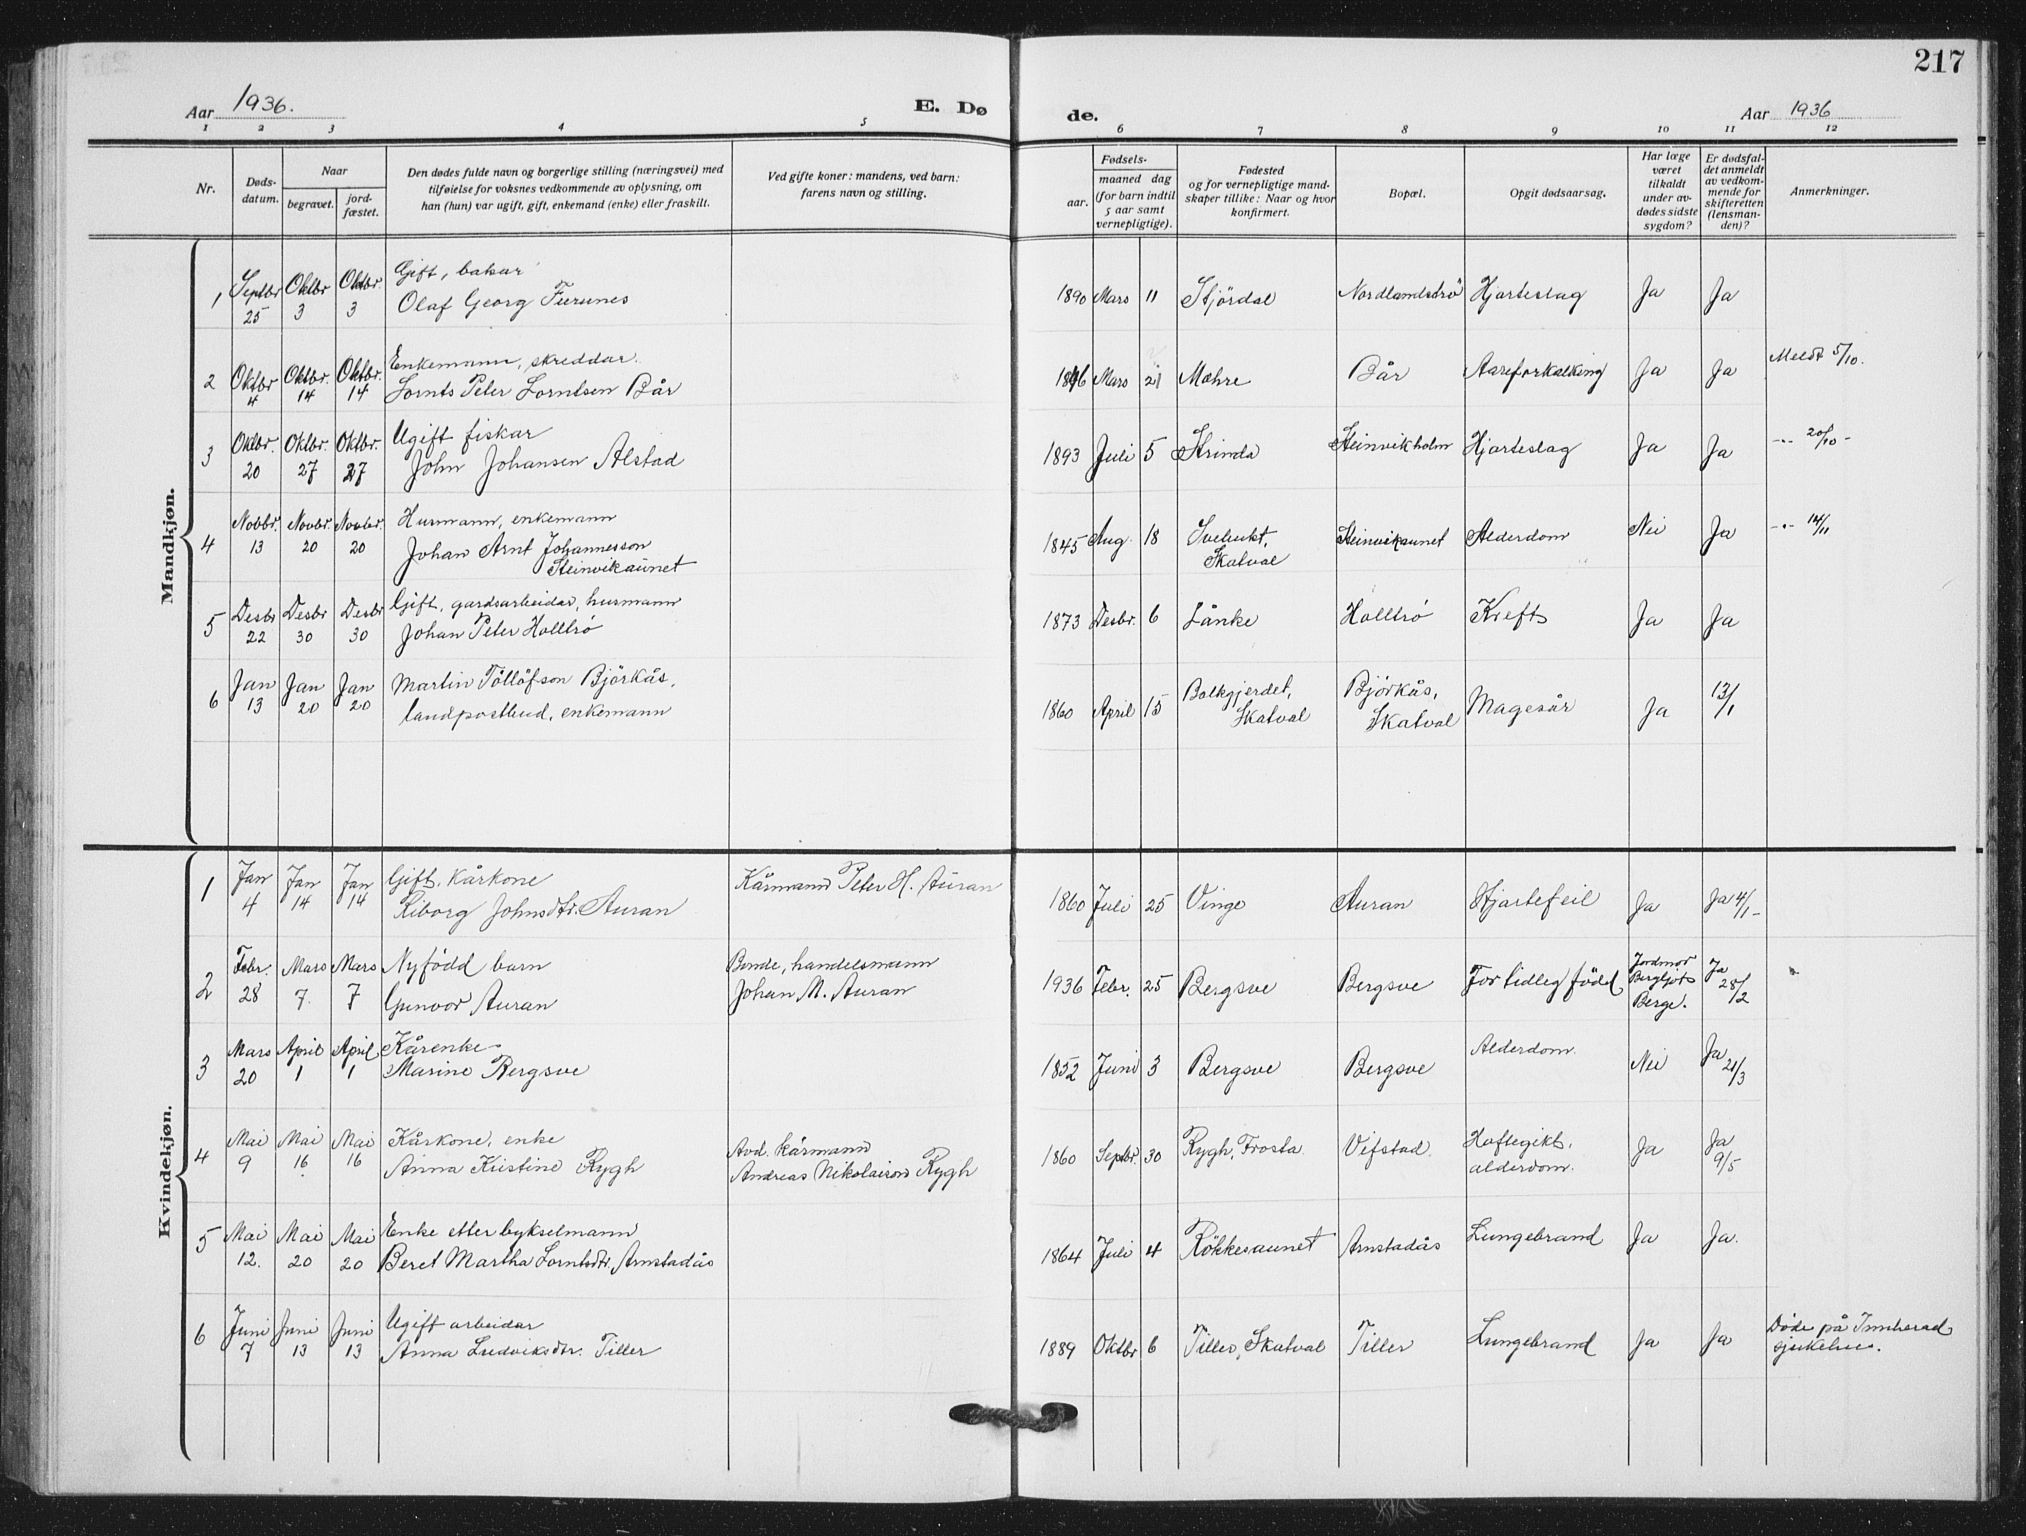 217
Aar 1936. E. Døde. Aar 1936
1 2 3 4 5 6 7 8 9 10 11 12
Nr. | Døds-datum. | Naar begravet. | jord-fæstet. | Den dødes fulde navn og borgerlige stilling (næringsvei) med tilføielse for voksnes vedkommende av oplysning, om han (hun) var ugift, gift, enkemand (enke) eller fraskilt. | Ved gifte koner: mandens, ved barn: farens navn og stilling. | Fødsels- aar. | maaned dag (for barn indtil 5 aar samt vernepligtige). | Fødested og for vernepligtige mand-skaper tillike: Naar og hvor konfirmert. | Bopæl. | Opgit dødsaarsag. | Har læge været tilkaldt under av-dødes sidste sygdom? | Er dødsfal-det anmeldt av vedkom-mende for skifteretten (lensman-den)? | Anmerkninger.
Mandkjøn.
1 | Septbr 25 | Oktbr 3 | Oktbr. 3 | Gift, bakar Olaf Georg Furunes | 1890 | Mars 11 | Stjördal | Nordlandströ | Hjarteslag | Ja | Ja
2 | Oktbr 4 | Oktbr. 14 | Oktbr. 14 | Enkemann, skreddar. Lornts Peter Lorntsen Bår | Mars 21 | Mæhre | Bår | Aareforkalking | Ja | Ja | Meldt 5/10.
3 | Oktbr. 20 | Oktbr. 27 | Oktbr. 27 | Ugift fiskar John Johansen Alstad | 1893 | Juli 5 | Strinda | Steinvikholm | Hjarteslag | Ja | Ja | -"- 20/10 -
4 | Novbr. 13 | Novbr. 20 | Novbr. 20 | Husmann, enkemann Johan Arnt Johannesson Steinvikaunet | 1845 | Aug. 18 | Skatval | Steinvikaunet | Alderdom | Nei | Ja | -"- 14/11
5 | Desbr 22 | Desbr 30 | Desbr 30 | Gift, gardsarbeidar, husmann Johan Peter Holltrö | 1873 | Desbr. 6 | Lånke | Holltrö | Kreft | Ja | Ja
6 | Jan 13 | Jan 20 | Jan 20 | Martin Tollöfson Björkås, landpostbud, enkemann | 1860 | April 15 | Balkgjerdet, Skatval | Björkås, Skatval | Magesår | Ja | 13/1
Kvindekjøn.
1 | Jan 4 | Jan 14 | Jan 14 | Gift, kårkone Kiborg Johnsdtr. Auran | Kårmann Peter H. Auran | 1860 | Juli 25 | Vinge | Auran | Hjartefeil | Ja | Ja 4/1 -
2 | Febr. 28 | Mars 7. | Mars 7 | Nyfödd barn Gunvor Auran | Bonde, handelsmann Johan M. Auran | 1936 | Febr. 25 | Bergsve | Bergsve | For tidleg född | Jordmor Bergljot Berge. | Ja 28/2
3 | Mars 20 | April 1 | April 1 | Kårenke Marine Bergsve | 1852 | Juni 3 | Bergsve | Bergsve | Alderdom. | Nei | Ja 21/3
4 | Mai 9 | Mai 16 | Mai 16 | Kårkone, enke Anna Kristine Rygh | Avd. kårmann Andreas Nikolaison Rygh | 1860 | Septbr. 30 | Rygh, Frosta | Vifstad. | Hoftegikt, alderdom. | Ja | Ja 9/5
5 | Mai 12. | Mai 20 | Mai 20 | Enke etter bykselmann Beret Martha Lorntsdtr. Arnstadås | 1864 | Juli 4 | Rökkesaunet | Arnstadås | Lungebrand | Ja | Ja.
6 | Juni 7 | Juni 13 | Juni 13 | Ugift arbeidar Anna Ludviksdtr. Tiller | 1889 | Oktbr 6 | Tiller, Skatval | Tiller | Lungebrand | Ja | Ja | Döde på Innherad sjukehus.